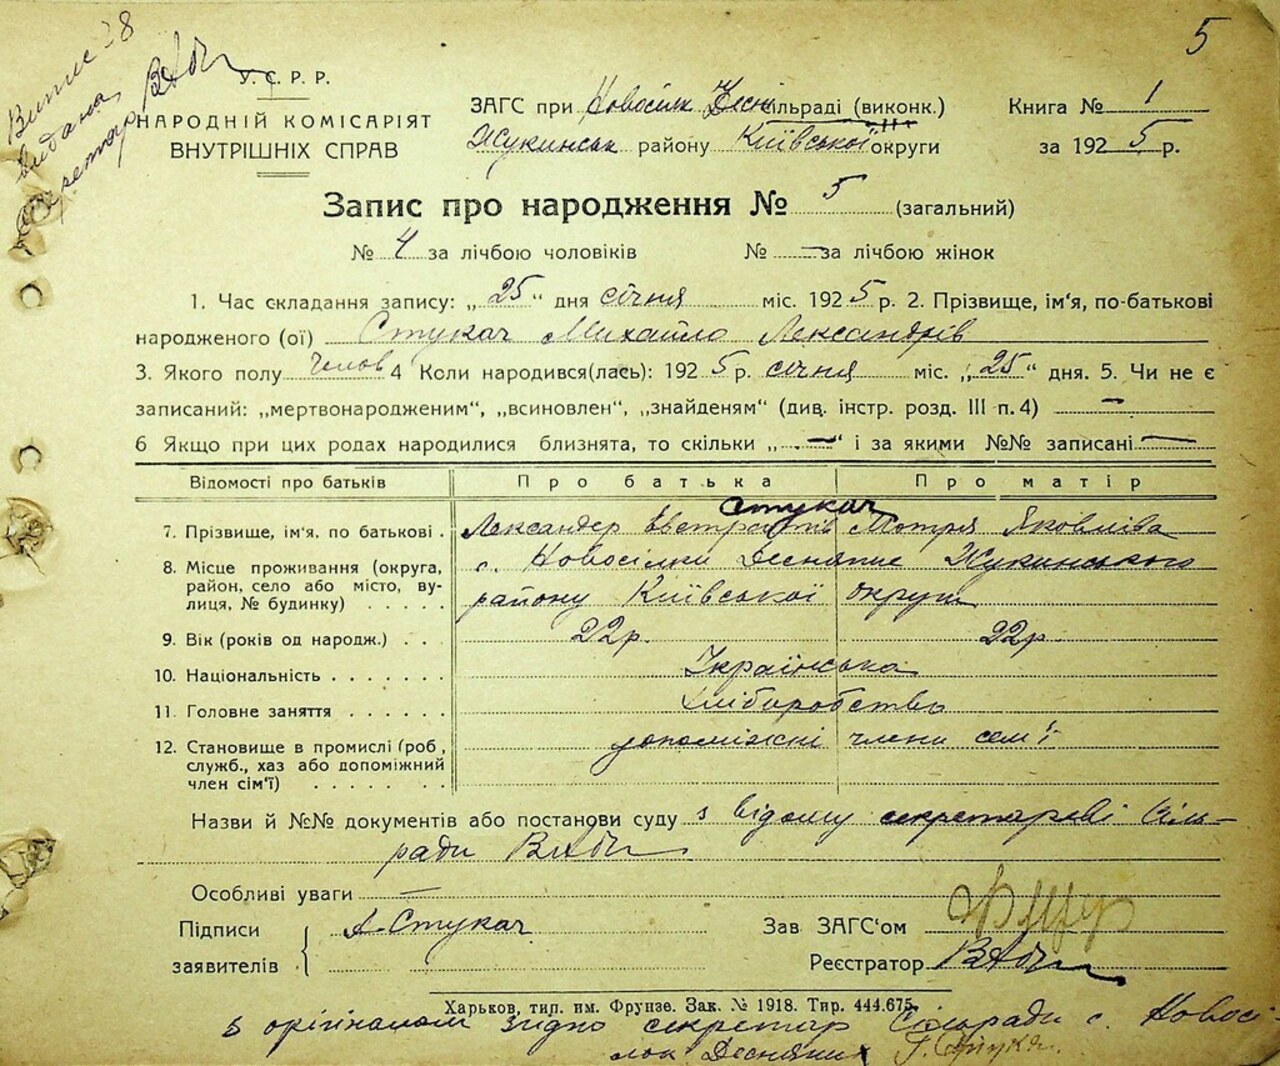 Випис 28
видана
секретар
5
У. С. Р. Р.
НАРОДНІЙ КОМІСАРІЯТ
ВНУТРІШНІХ СПРАВ
ЗАГС при Новосілк Десн ільраді (виконк.)
Жукинськ району Київської округи
Книга № 1
за 1925 р.
Запис про народження № 5 (загальний)
№ 4 за лічбою чоловіків № — за лічбою жінок
1. Час складання запису: „25“ дня січня міс. 1925 р. 2. Прізвище, ім'я, по-батькові
народженого (ої) Стукач Михайло Лександрів
3. Якого полу Чолов 4 Коли народився(лась): 1925 р. січня міс. „25“ дня. 5. Чи не є
записаний: „мертвонародженим“, „всиновлен“, „знайденям“ (див. інстр. розд. III п. 4) —
6 Якщо при цих родах народилися близнята, то скільки „—“ і за якими №№ записані —
Відомості про батьків Про батька Про матір
Стукач
7. Прізвище, ім'я, по батькові . Лександер Евстратів Мотря Яковліва
8. Місце проживання (округа, с. Новосілки Десняные Жукинського
район, село або місто, ву-
лиця, № будинку) . . . . . району Київської округи
9. Вік (років од народж.) . . . 22р. 22р.
10. Національність . . . . . . . Українська
11. Головне заняття . . . . . . хліборобство
12. Становище в промислі (роб., допоміжні члени сем'ї
служб., хаз або допоміжний
член сім'ї) . . . . . . .
Назви й №№ документів або постанови суду з відому секретарові Сіль-
ради
Особливі уваги —
Підписи А. Стукач Зав ЗАГС'ом
заявителів Реєстратор
Харьков, тип. им. Фрунзе. Зак. № 1918. Тир. 444.675.
з орігіналом згідно секретар Сільради с. Новосі-
лок Десняних